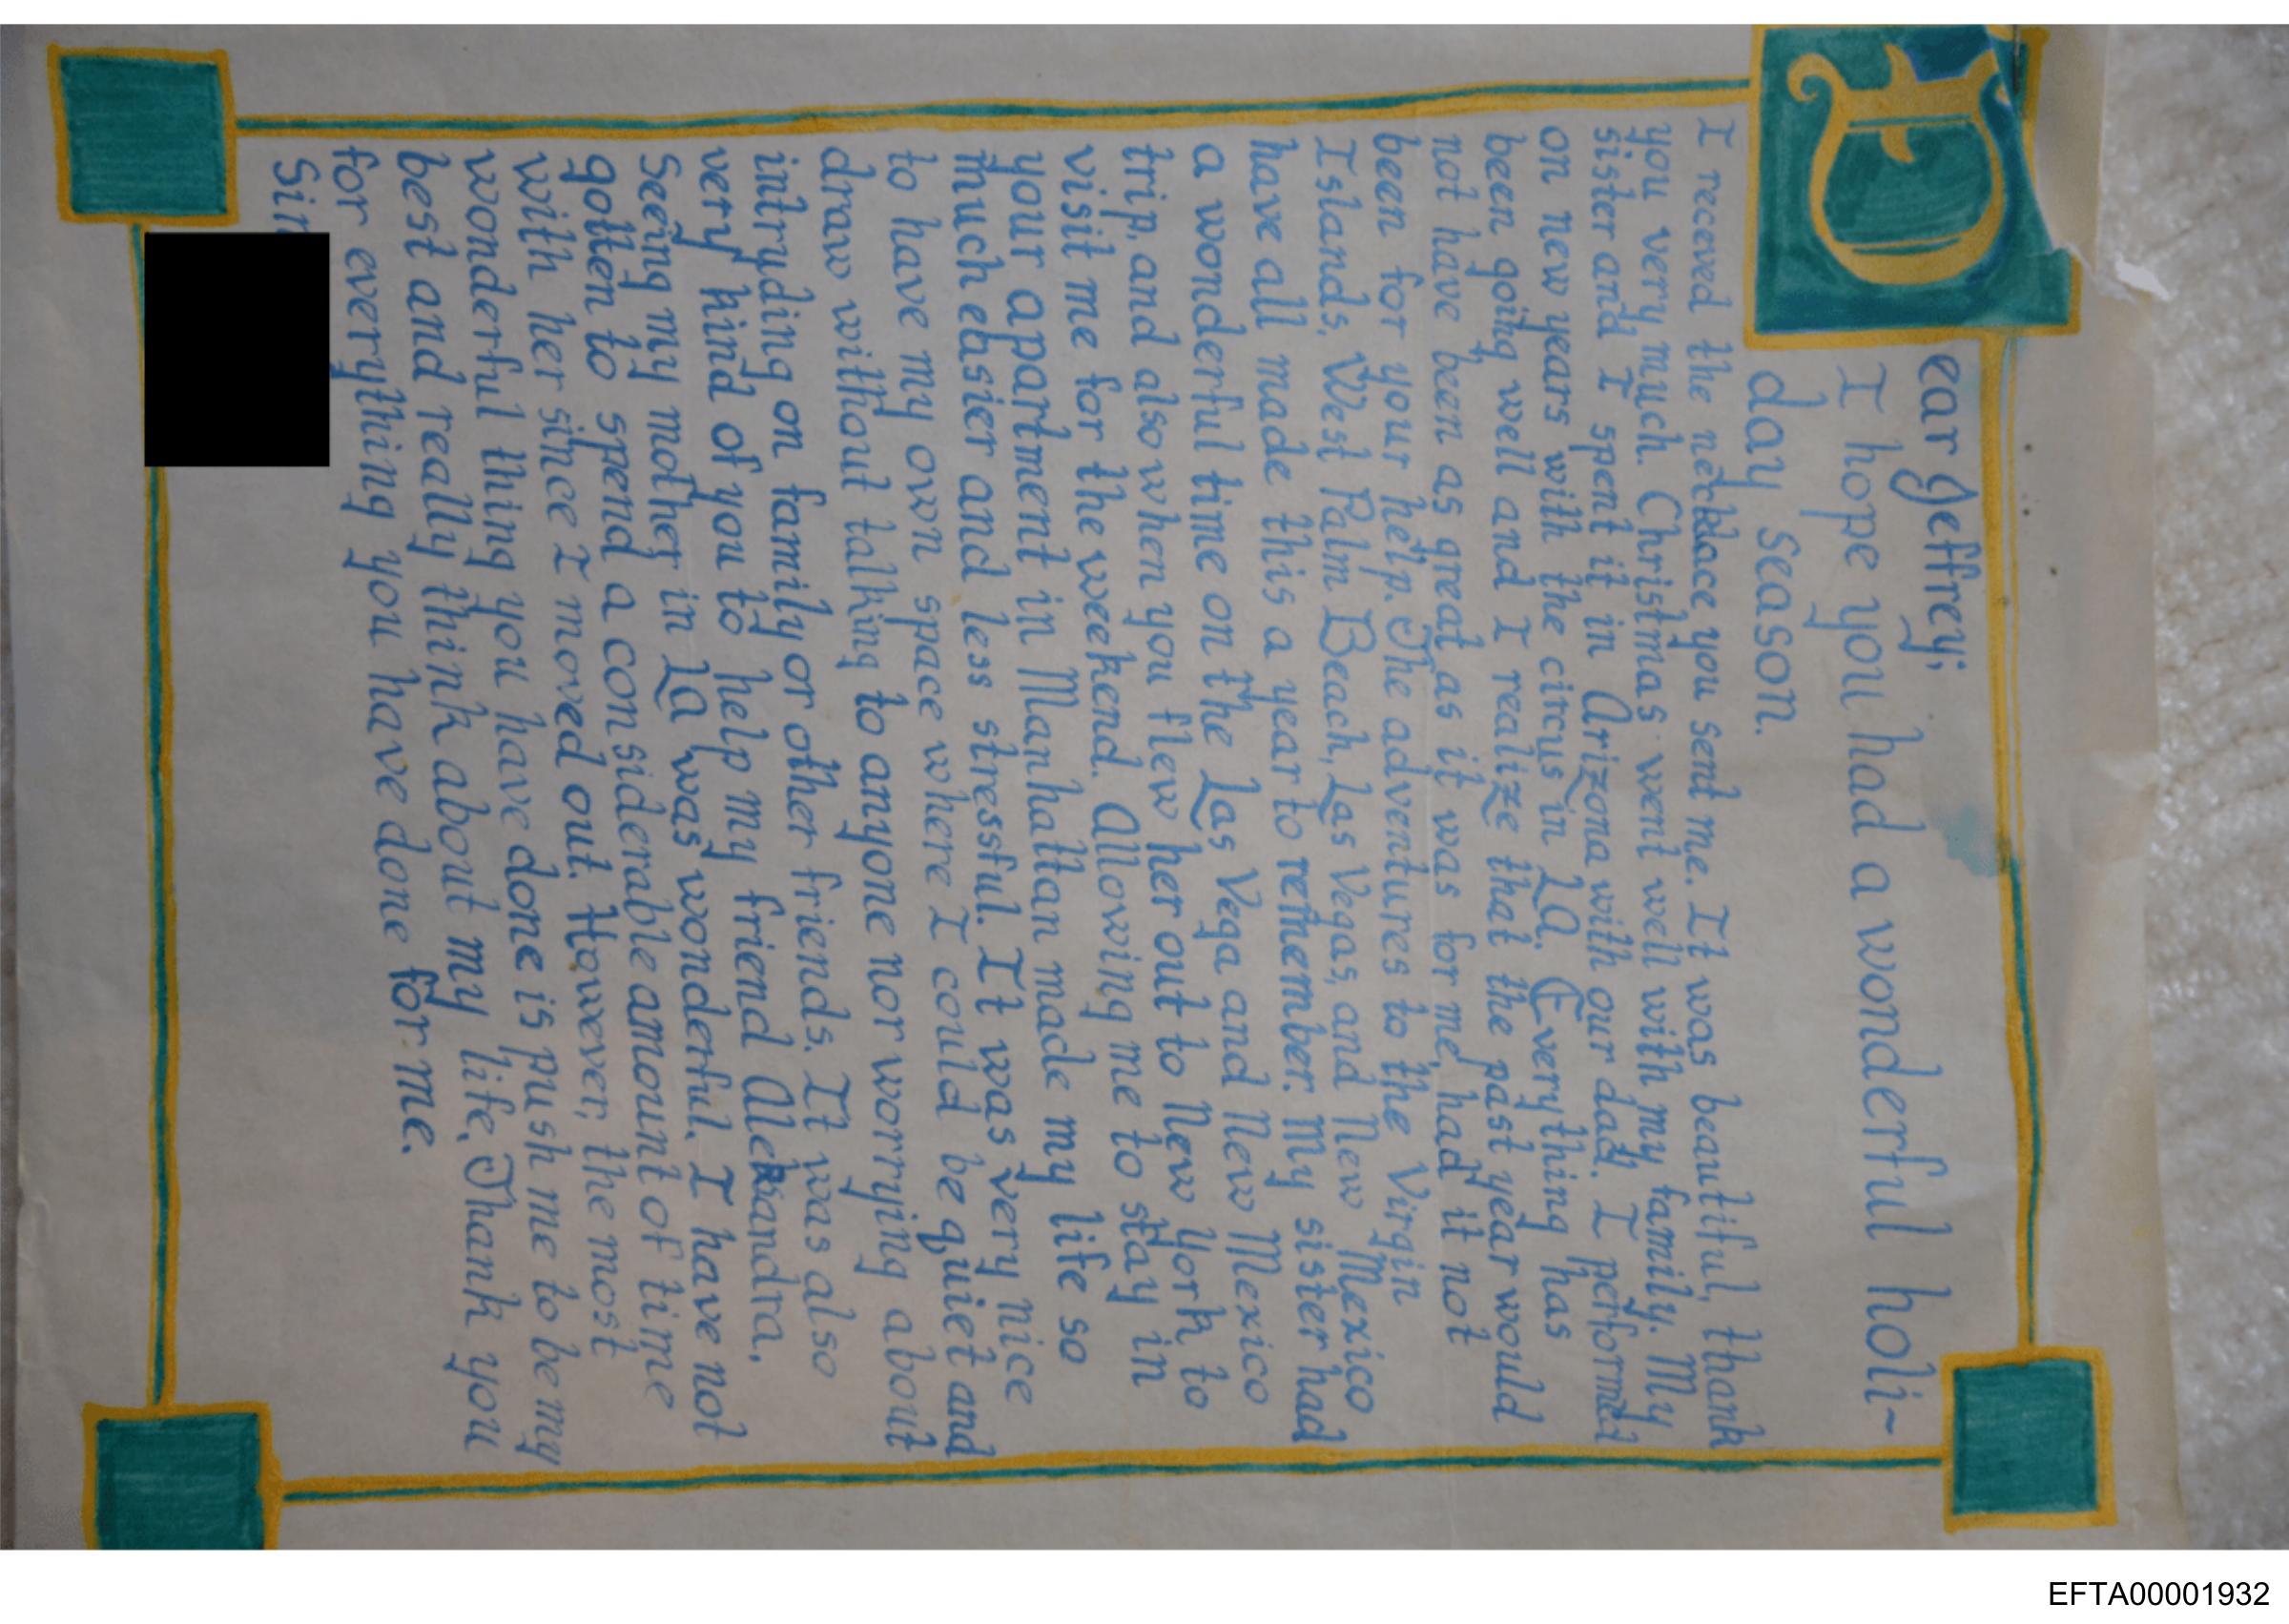 Dear Jeffrey,
I hope you had a wonderful holi~
day season.
I received the necklace you sent me. It was beautiful, thank
you very much. Christmas went well with my family. My
sister and I spent it in Arizona with our dad. I performed
on new years with the circus in LA. Everything has
been going well and I realize that the past year would
not have been as great as it was for me, had it not
been for your help. The adventures to the Virgin
Islands, West Palm Beach, Las Vegas, and New Mexico
have all made this a year to remember. My sister had
a wonderful time on the Las Vega and New Mexico
trip, and also when you flew her out to New York to
visit me for the weekend. Allowing me to stay in
your apartment in Manhattan made my life so
much easier and less stressful. It was very nice
to have my own space where I could be quiet and
draw without talking to anyone nor worrying about
intruding on family or other friends. It was also
very kind of you to help my friend Aleksandra.
Seeing my mother in LA was wonderful. I have not
gotten to spend a considerable amount of time
with her since I moved out. However, the most
wonderful thing you have done is push me to be my
best and really think about my life. Thank you
for everything you have done for me.
Sin
EFTA00001932